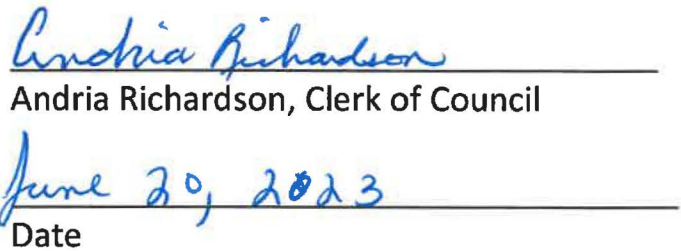 Andria Richardson
Andria Richardson, Clerk of Council
June 20, 2023
Date